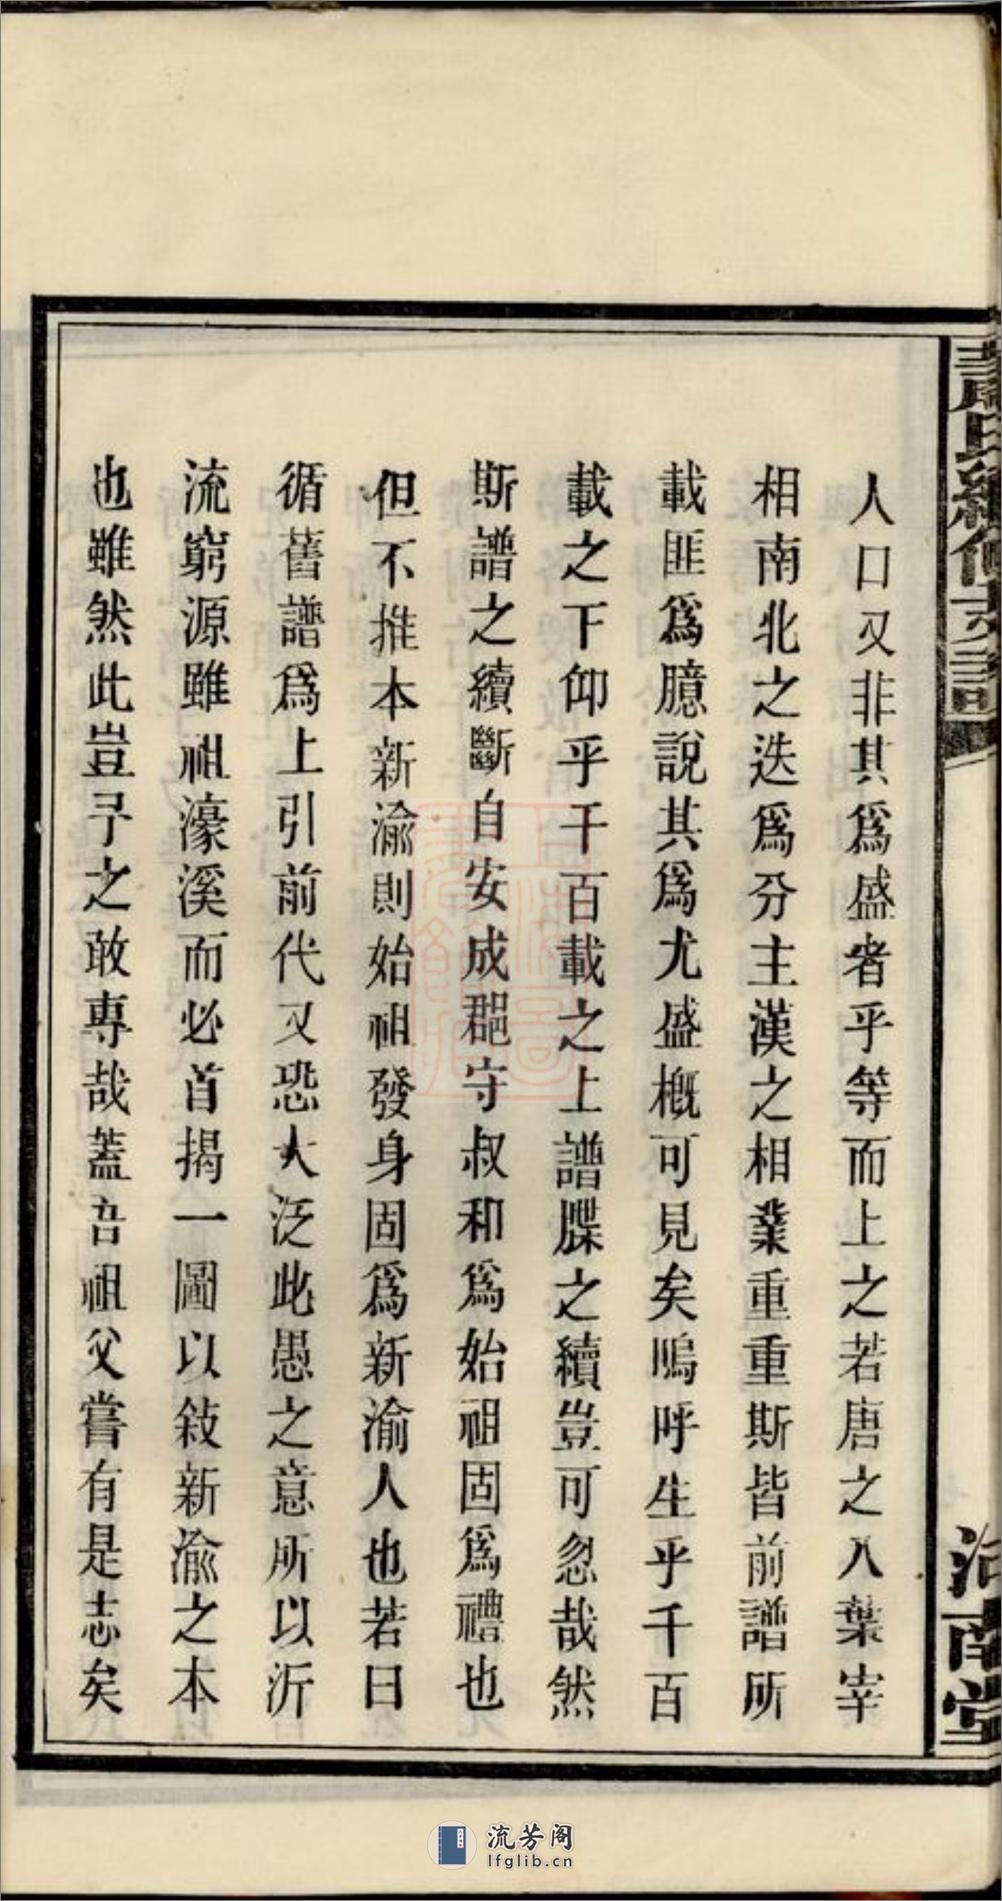 人口又非其爲盛者乎等而上之若唐之八葉宰
相南北之迭爲分主漢之相業重重斯皆前譜所
載匪爲臆說其爲尤盛概可見矣嗚呼生乎千百
載之下仰乎千百載之上譜牒之續豈可忽哉然
斯譜之續斷自安成郡守叔和爲始祖固爲禮也
但不推本新渝則始祖發身固爲新渝人也若曰
循舊譜爲上引前代又恐大泛此愚之意所以沂
流窮源雖祖濠溪而必首揭一圖以敍新渝之本
也雖然此豈予之敢專哉蓋吾祖父嘗有是志矣
流芳阁
lfglib.cn